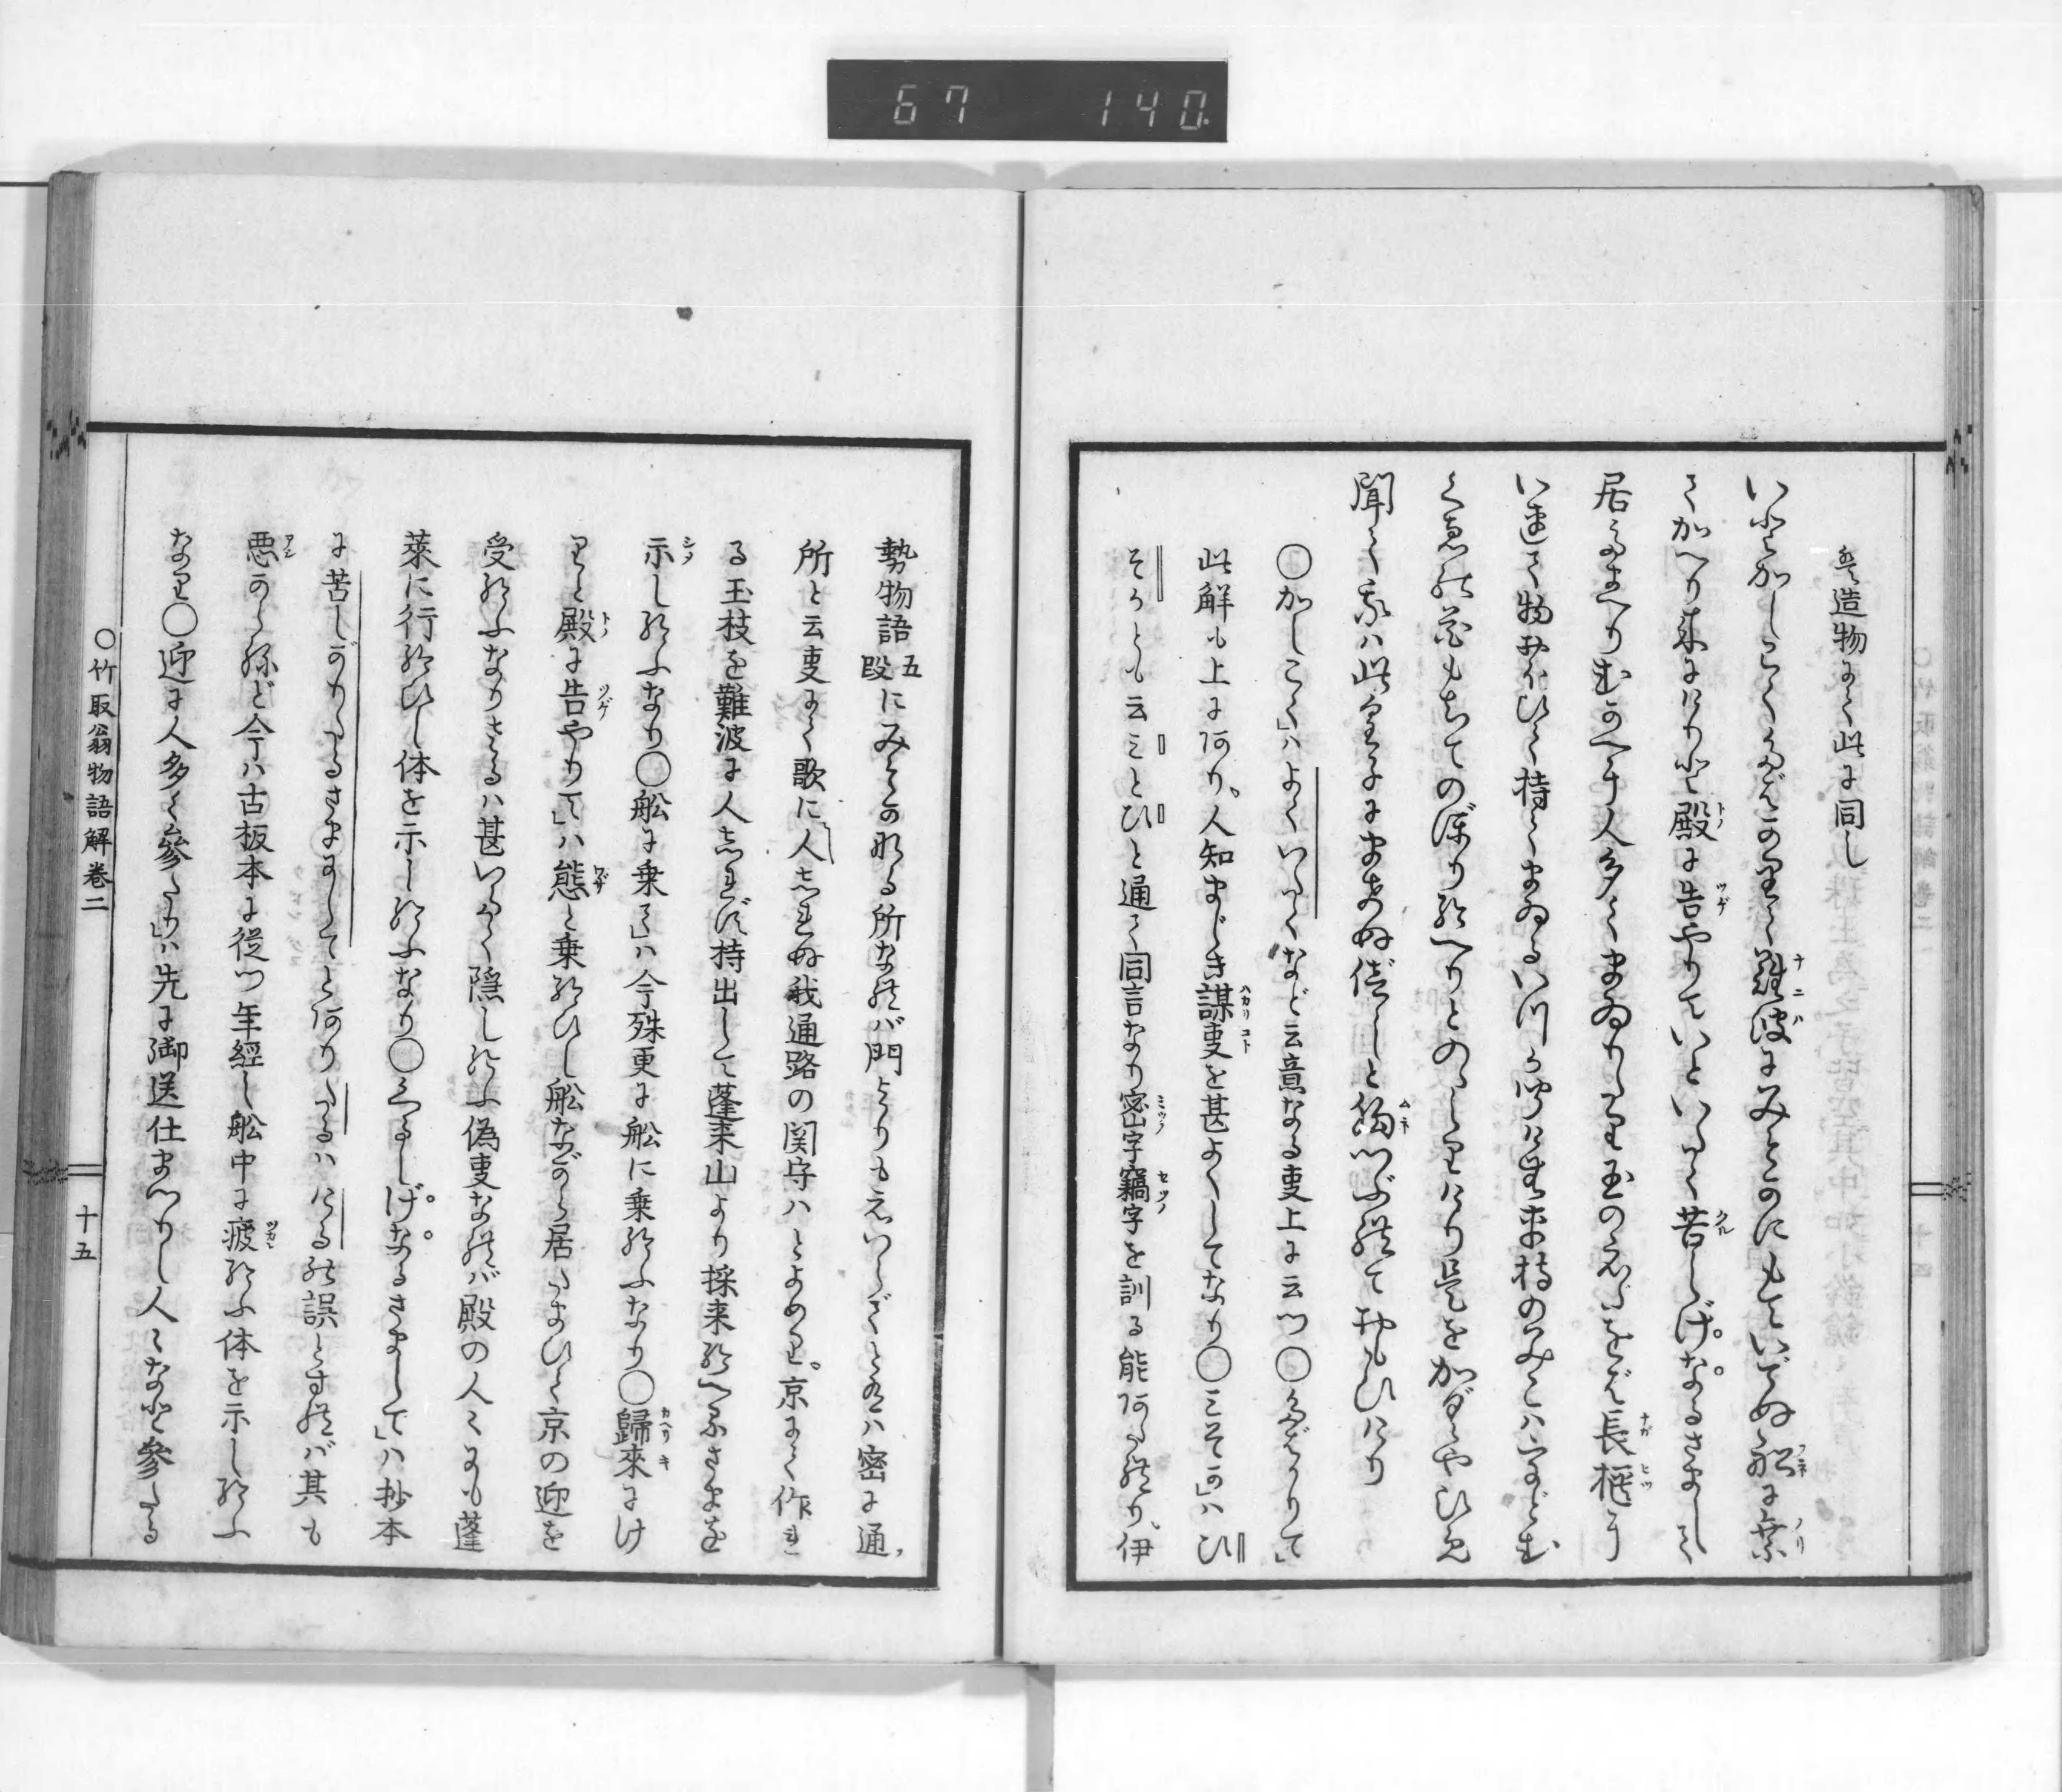 67 140
兵造物よく此に同し
いとかしこくたばかりて難波にみそかにもていでぬ船に乗
てかへり来にけりと殿に告やりていといたく苦しげなるさまして
居たまへりむかへに人多くまゐりたり玉のえだをば長櫃に
い連て物おほひて持てまゐるいつか聞けむくらもちのみこはうどむ
くゑの花もちてのぼり給へりとのゝしりけり是をかぐやひめ
聞て我は此みこにまけぬべしと胸つぶれておもひけり
○かしこく」ハよくいたくなど云意なる事上に云つ○たばかりて」
此解も上に阿り、人知まじき謀事を甚よくしてなり○みそか」ハひ
そかとも云みとひと通て同言なり密字竊字を訓る能阿たれり、伊
勢物語五段にみそかなる所なれバ門よりもえいらでとあるハ密に通、
所と云事よく歌に人しれぬ我通路の関守ハとよめり。京よく作れ
る玉枝を難波に人しれず持出して蓬莱山より採来給へるさまを
示し給ふなり○船に乗て」ハ今殊更に船に乗給ふなり○歸來にけ
りと殿に告やりて」ハ態と乗給ひし船ながら居たまひて京の迎を
受給ふなりさるハ甚いたく隠し給ふ偽事なれバ殿の人々にも蓬
莱に行給ひし体を示し給ふなり○くるしげなるさまして」ハ抄本
に苦しがりたるさまにしてと阿りたるハにるの誤とすれバ其も
悪からねど今ハ古板本に従つ年経し船中に疲給ふ体を示し給ふ
なり○迎に人多く參たり」ハ先に御送仕まつりし人々など參たる
○竹取翁物語解卷二
十五